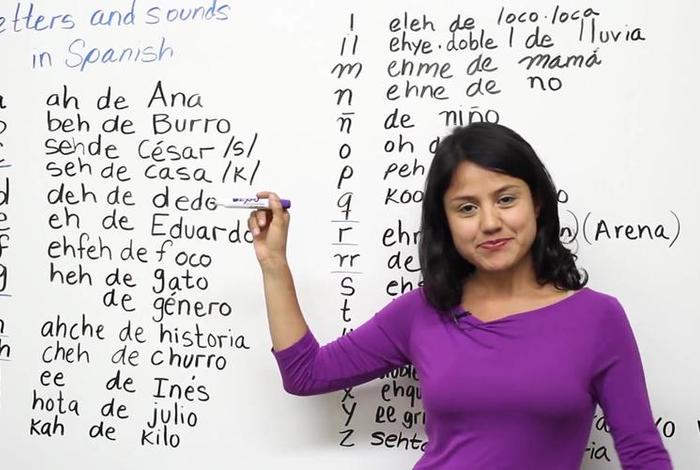 etters and sounds
in Spanish
ah de Ana
beh de Burro
sehde César /s/
seh de casa /k/
d deh de dedo
e eh de Eduardo
f ehfeh de foco
g heh de gato
de género
ahche de historia
h cheh de churro
ee de Inés
hota de julio
kah de kilo
l eleh de loco.loca
ll ehye.doble l de lluvia
m ehme de mamá
n ehne de no
ñ de niño
o oh d
p peh
q koo o
r ehr n) (Arena)
rr de
s ehs
t
x ehqu
y ee gri yo
z sehta ria